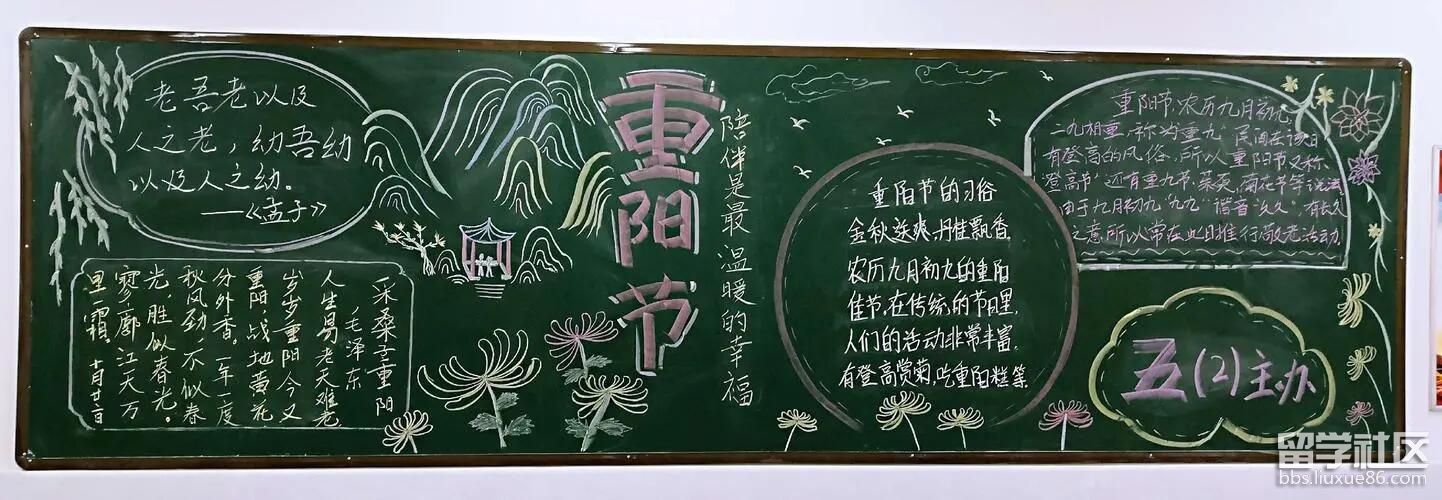 老吾老以及
人之老，幼吾幼
以及人之幼。
——《孟子》
采桑子重阳
毛泽东
人生易老天难老
岁岁重阳今又
重阳，战地黄花
分外香。一年一度
秋风劲，不似春
光，胜似春光。
寥廓江天万
里霜。十月廿二日
重阳节
陪伴是最温暖的幸福
重阳节的习俗
金秋送爽,丹桂飘香,
农历九月初九的重阳
佳节,在传统的节日里,
人们的活动非常丰富,
有登高赏菊,吃重阳糕等
重阳节,农历九月初九,
二九相重,称为"重九"民间在该日
有登高的风俗,所以重阳节又称
"登高节"还有重九节,茱萸,菊花节等说法
由于九月初九"九九"谐音"久久",有长久
之意所以常在此日推行敬老活动.
五(2)主办
留学社区
bbs.liuxue86.com